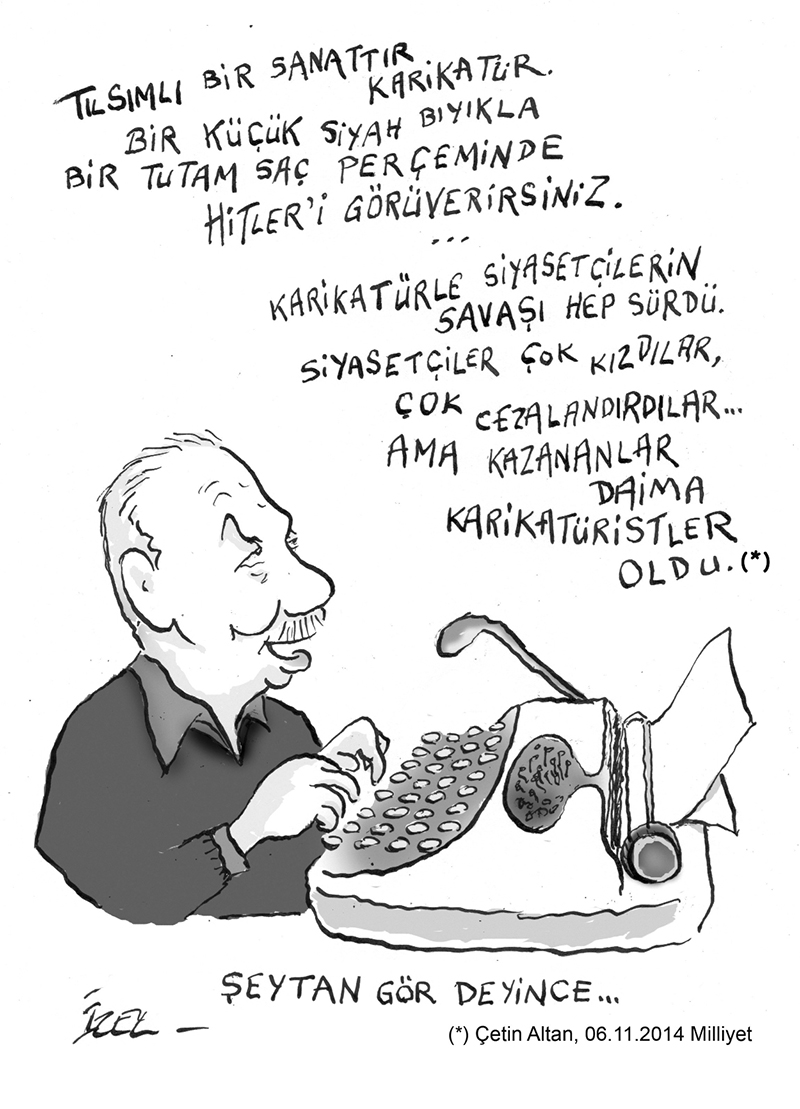 TILSIMLI BİR SANATTIR
KARİKATÜR.
BİR KÜÇÜK SİYAH BIYIKLA
BİR TUTAM SAÇ PERÇEMİNDE
HİTLER'İ GÖRÜVERİRSİNİZ.
...
KARİKATÜRLE SİYASETÇİLERİN
SAVAŞI HEP SÜRDÜ.
SİYASETÇİLER ÇOK KIZDILAR,
ÇOK CEZALANDIRDILAR...
AMA KAZANANLAR
DAİMA
KARİKATÜRİSTLER
OLDU.(*)
ŞEYTAN GÖR DEYİNCE...
İZEL
(*) Çetin Altan, 06.11.2014 Milliyet